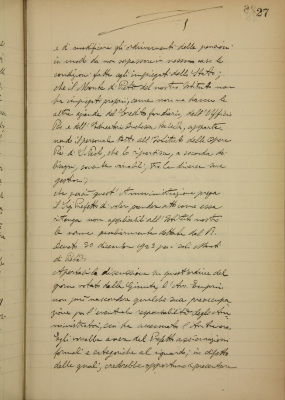 27
e di modificare gli ordinamenti delle pensioni
in modo da non sorpassare in nessun caso le
condizioni fatte agli impiegati dello Stato;
che il Monte di Pietà del nostro Istituto non
ha impiegati propri, come non ne hanno le
altre aziende del Credito fondiario, dell'Ufficio
Pio e dell' Educatorio Duchessa Isabella, appartenendo
il personale tutto all' Istituto delle Opere
Pie di S. Paolo, che lo ripartisce, a seconda dei
bisogni, sempre variabili, fra le diverse sue
gestioni;
che perciò quest' Amministrazione prega
il Sig. Prefetto di voler ponderare come essa
ritenga non applicabili all' Istituto nostro
le norme genericamente dettate dal R.
Decreto 30 dicembre 1923 per i soli Monti
di Pietà.
Apertasi la discussione su quest'ordine del
giorno votato dalla Giunta, l' Avv.
non può nascondere qualche sua preoccupazione
per l'eventuale responsabilità degli Amministratori,
cui ha accennato l'
Egli vorrebbe avere dal Prefetto assicurazioni
formali e categoriche al riguardo; in difetto
delle quali, crederebbe opportuno di presentare